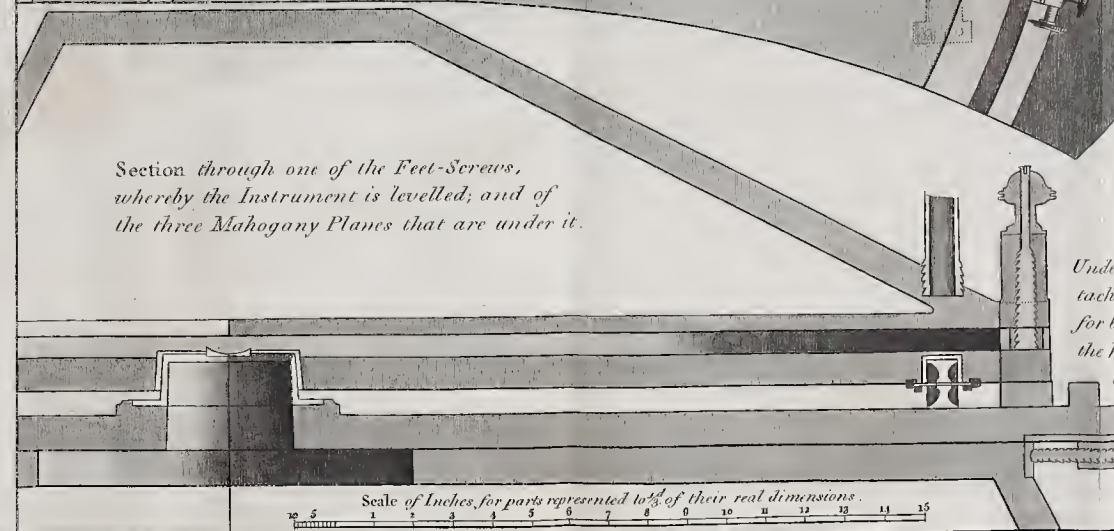 Section through one of the Feet-Screws,
whereby the Instrument is levelled; and of
the three Mahogany Planes that are under it.
Unde
tach
for
the
Scale of Inches, for parts represented to ⅓d of their real dimensions.
10 5 1 2 3 4 5 6 7 8 9 10 11 12 13 14 15